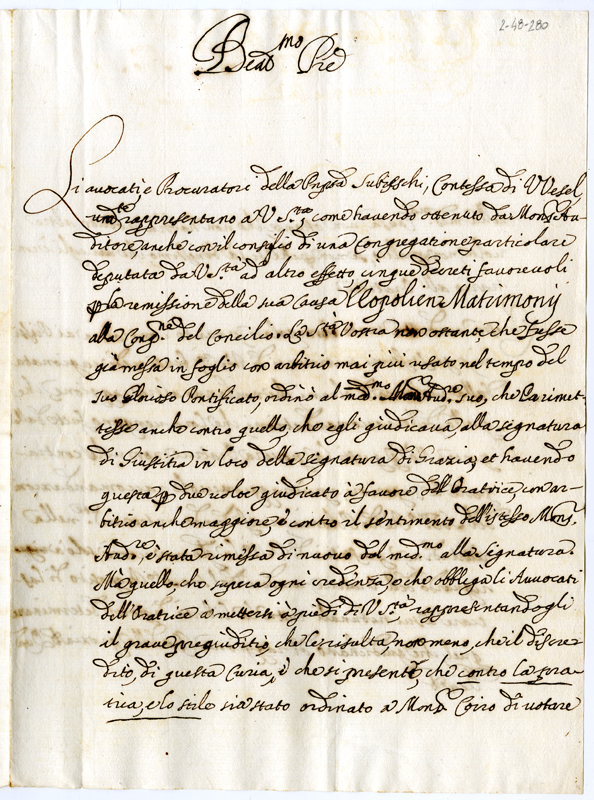 2-48-280
Beat.mo Pre
Li avocati, e Procuratori della Pnpssa Subieschi, Contessa di VVesel,
umte rappresentano a V. S.ta, come havendo ottenuto da Mons. Au-
ditore, anche con il consiglio di una Congregatione particolare
deputata da V. S.ta ad altro effetto cinque decreti favorevoli
p la remissione della sua Causa Leopolien Matrimonij
alla Cong.ne del Concilio. La S.tà Vostra non ostante, che fusse
già messa in foglio con arbitrio mai più usato nel tempo del
suo Glorioso Pontificato, ordinò al med.mo Mons. Aud.re suo, che la rimet-
tesse anche contro quello, che egli giudicava, alla signatura
di Giustitia in loco della signatura di Gratia, et havendo
questa p due volte giudicato à favore dell'Oratrice, con ar-
bitrio anche maggiore, è contro il sentimento dell'istesso Mons.
Aud.re, è stata rimessa di nuovo dal med.mo alla signatura.
Mà quello, che supera ogni credenza, e che obbliga li Avvocati
dell'Oratrice à mettersi à piedi di V. S.tà, rappresentandogli
il grave pregiuditio, che le risulta, non meno, che il discre-
dito, di questa Curia, è che si presente, che contro la pra-
tica, e lo stile sia stato ordinato a Mons. Coiro di votare